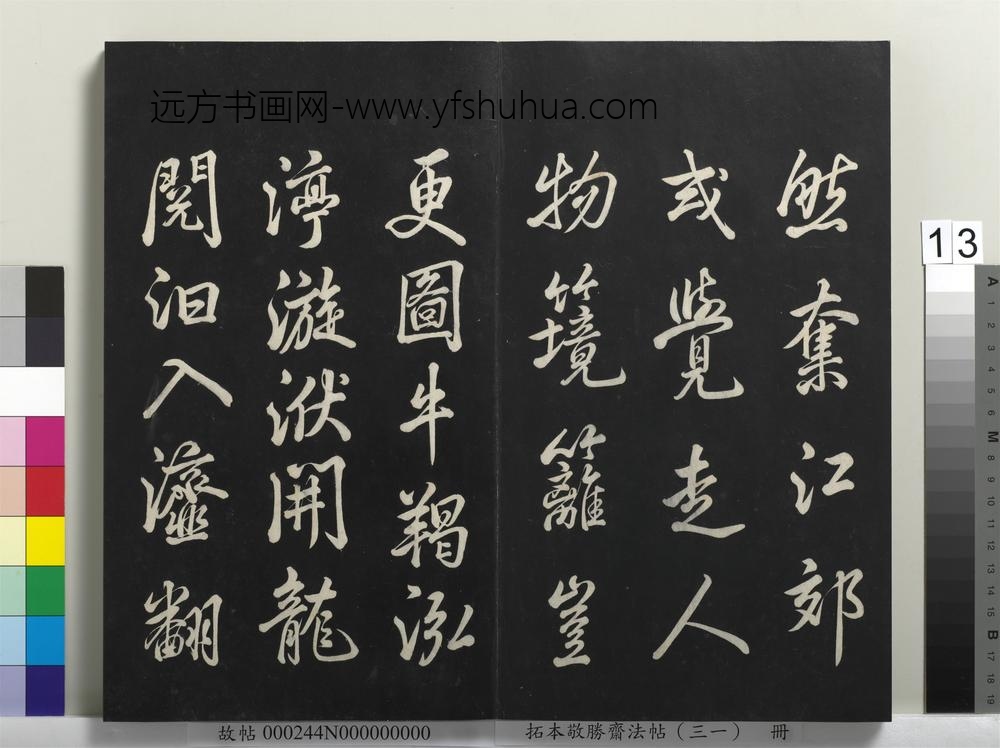 远方书画网-www.yfshuhua.com
然奪江郊
或覺走人
物籬豈
更圖牛羯泓
渟漩洑開龍
閱汩入翻
13
故帖 000244N000000000
拓本敬勝齋法帖（三一） 冊
A 1 2 3 4 5 6 M 8 9 10 11 12 13 14 15 B 17 18 19